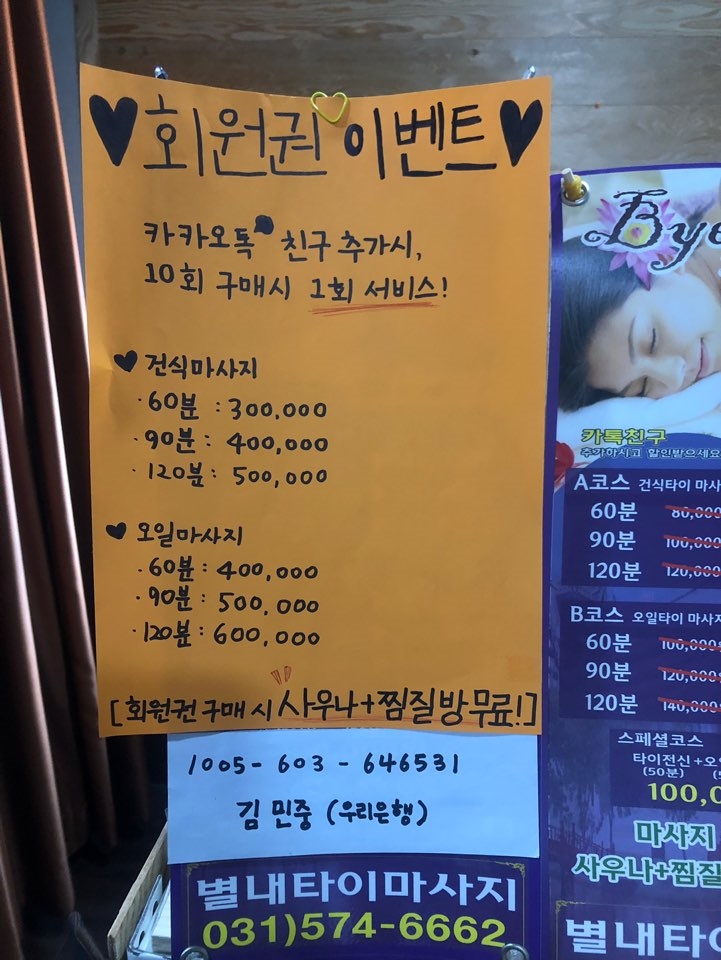 회원권 이벤트
카카오톡 친구 추가시,
10회 구매시 1회 서비스!
건식마사지
· 60분 : 300,000
· 90분 : 400,000
· 120분 : 500,000
오일마사지
· 60분 : 400,000
· 90분 : 500,000
· 120분 : 600,000
[회원권 구매 시 사우나+찜질방 무료!]
1005-603-646531
김민중 (우리은행)
별내타이마사지
031)574-6662
카톡친구
추가하시고 할인받으세요
A코스 건식타이 마사
60분 80,000
90분 100,000
120분 120,000
B코스 오일타이 마사지
60분 100,000
90분 120,000
120분 140,000
스페셜코스
타이전신+오
(50분)
100,0
마사지
사우나+찜질
별내타이마